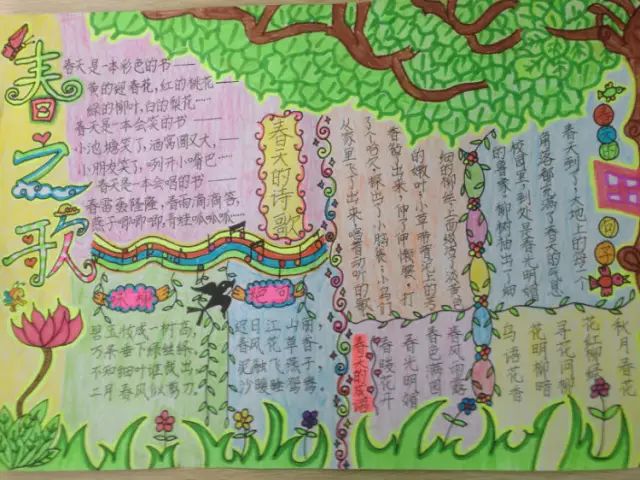 春之歌
春天是一本彩色的书——
黄的迎春花,红的桃花——
绿的柳叶,白的梨花……
春天是一本会笑的书——
小池塘笑了,酒窝圆又大,——
小朋友笑了,咧开小嘴巴……
春天是一本会唱的书——
春雷轰隆隆,春雨滴滴答,
燕子唧唧唧,青蛙呱呱呱……
春天的诗歌
春天到了,大地上的每一个
角落都充满了春天的气息
校园里,到处是春光明媚
的景象,柳树抽出了细
细的柳丝,上面缀
的嫩叶,小草带着
春笋
了个哈欠,探出了小脑袋,小鸟们
从家里飞了出来,唱着动听的歌
咏柳
碧玉妆成一树高,
万条垂下绿丝绦,
不知细叶谁裁出,
二月春风似剪刀。
绝句
迟日江山丽
春风花草香
泥融飞燕子
沙暖睡鸳鸯。
春天的成语
春暖花开
春光明媚
春色满园
春风
鸟语花香
花明柳暗
寻花问柳
花红柳绿
秋月春花